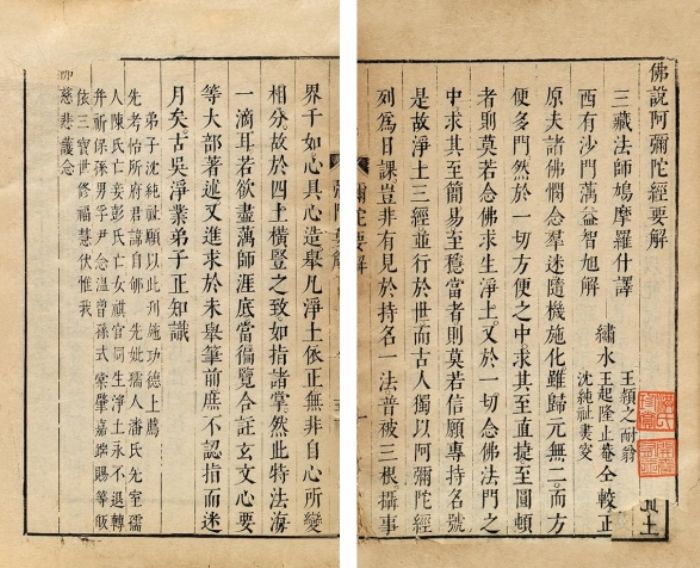 佛說阿彌陀經要解
三藏法師鳩摩羅什譯
西有沙門蕅益智旭解
繡水
王頴之耐翁
王起隆止菴
沈純祉
仝較正
原夫諸佛憫念羣迷隨機施化雖歸元無二而方
便多門然於一切方便之中求其至直捷至圓頓
者則莫若念佛求生淨土又於一切念佛法門之
中求其至簡易至穩當者則莫若信願專持名號
是故淨土三經並行於世而古人獨以阿彌陀經
列爲日課豈非有見於持名一法普被三根攝事
彌陀要解
彌陀要解
界千如心具心造舉凡淨土依正無非自心所變
相分故於四土橫豎之致如指諸掌然此特法海
一滴耳若欲盡蕅師涯底當徧覽合註玄文心要
等大部著述又進求於未舉筆前庶不認指而迷
月矣古吳淨業弟子正知識
弟子沈純祉願以此刊施功德上薦
先考怡所府君諱自邠 先妣孺人潘氏先室孺
人陳氏亡妾彭氏亡女官同生淨土永不退轉
幷祈保孫男孚尹念溫曾孫式肇嘉賜等皈
依三寶世修福慧伏惟我
佛慈悲護念